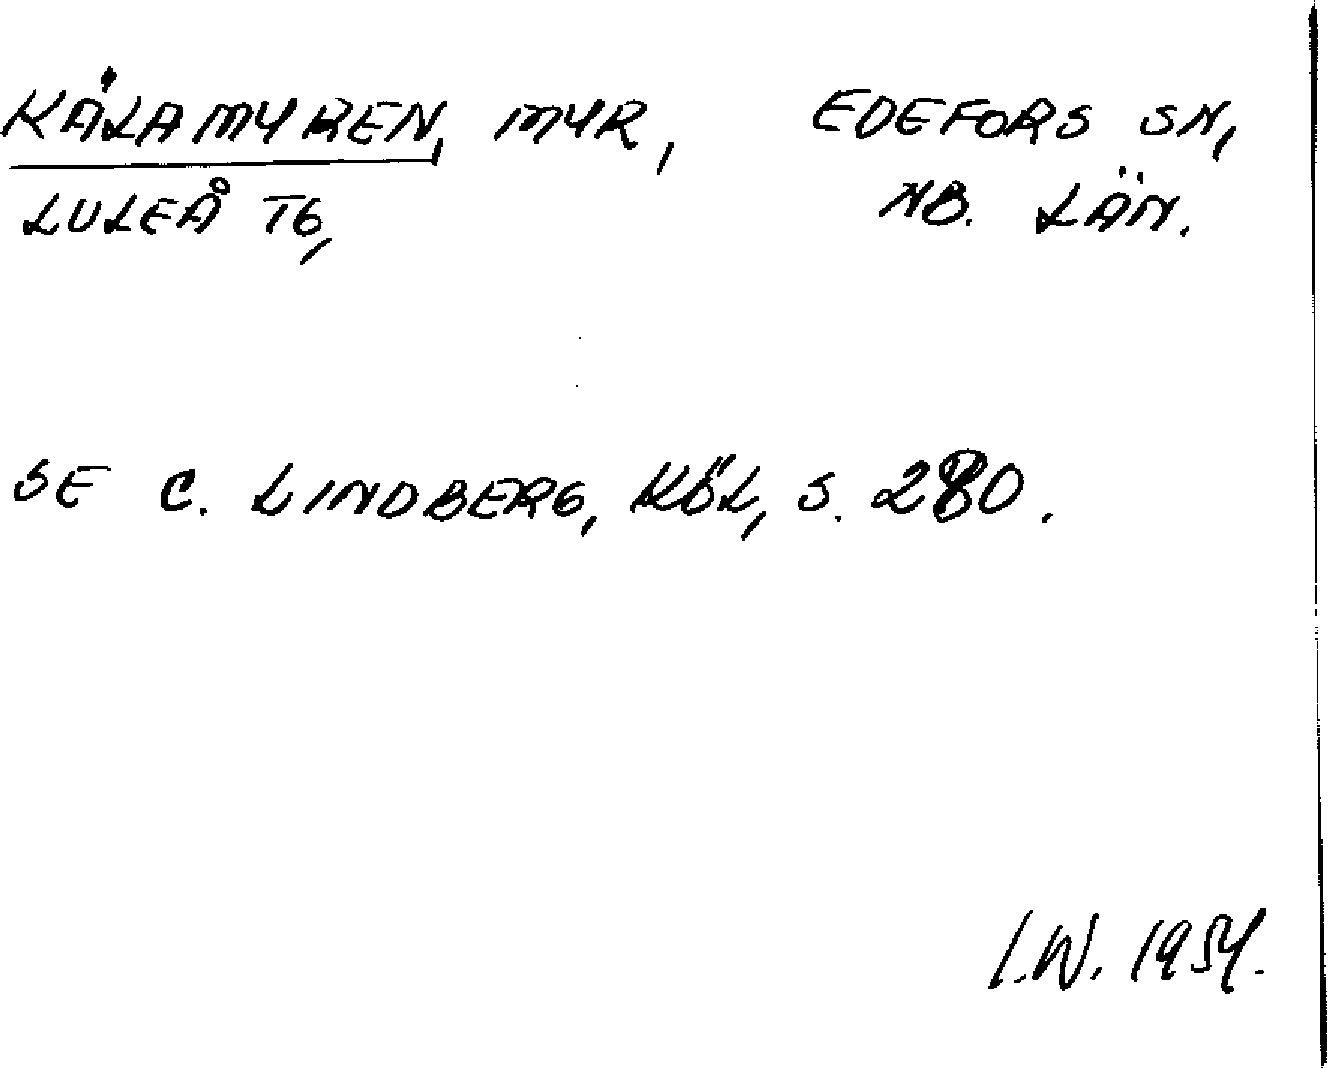 KÅLAMYREN, MYR, EDEFORS SN,
LULEÅ TG, NB. LÄN.
SE C. LINDBERG, KÖL, S. 280.
I.W. 1954.